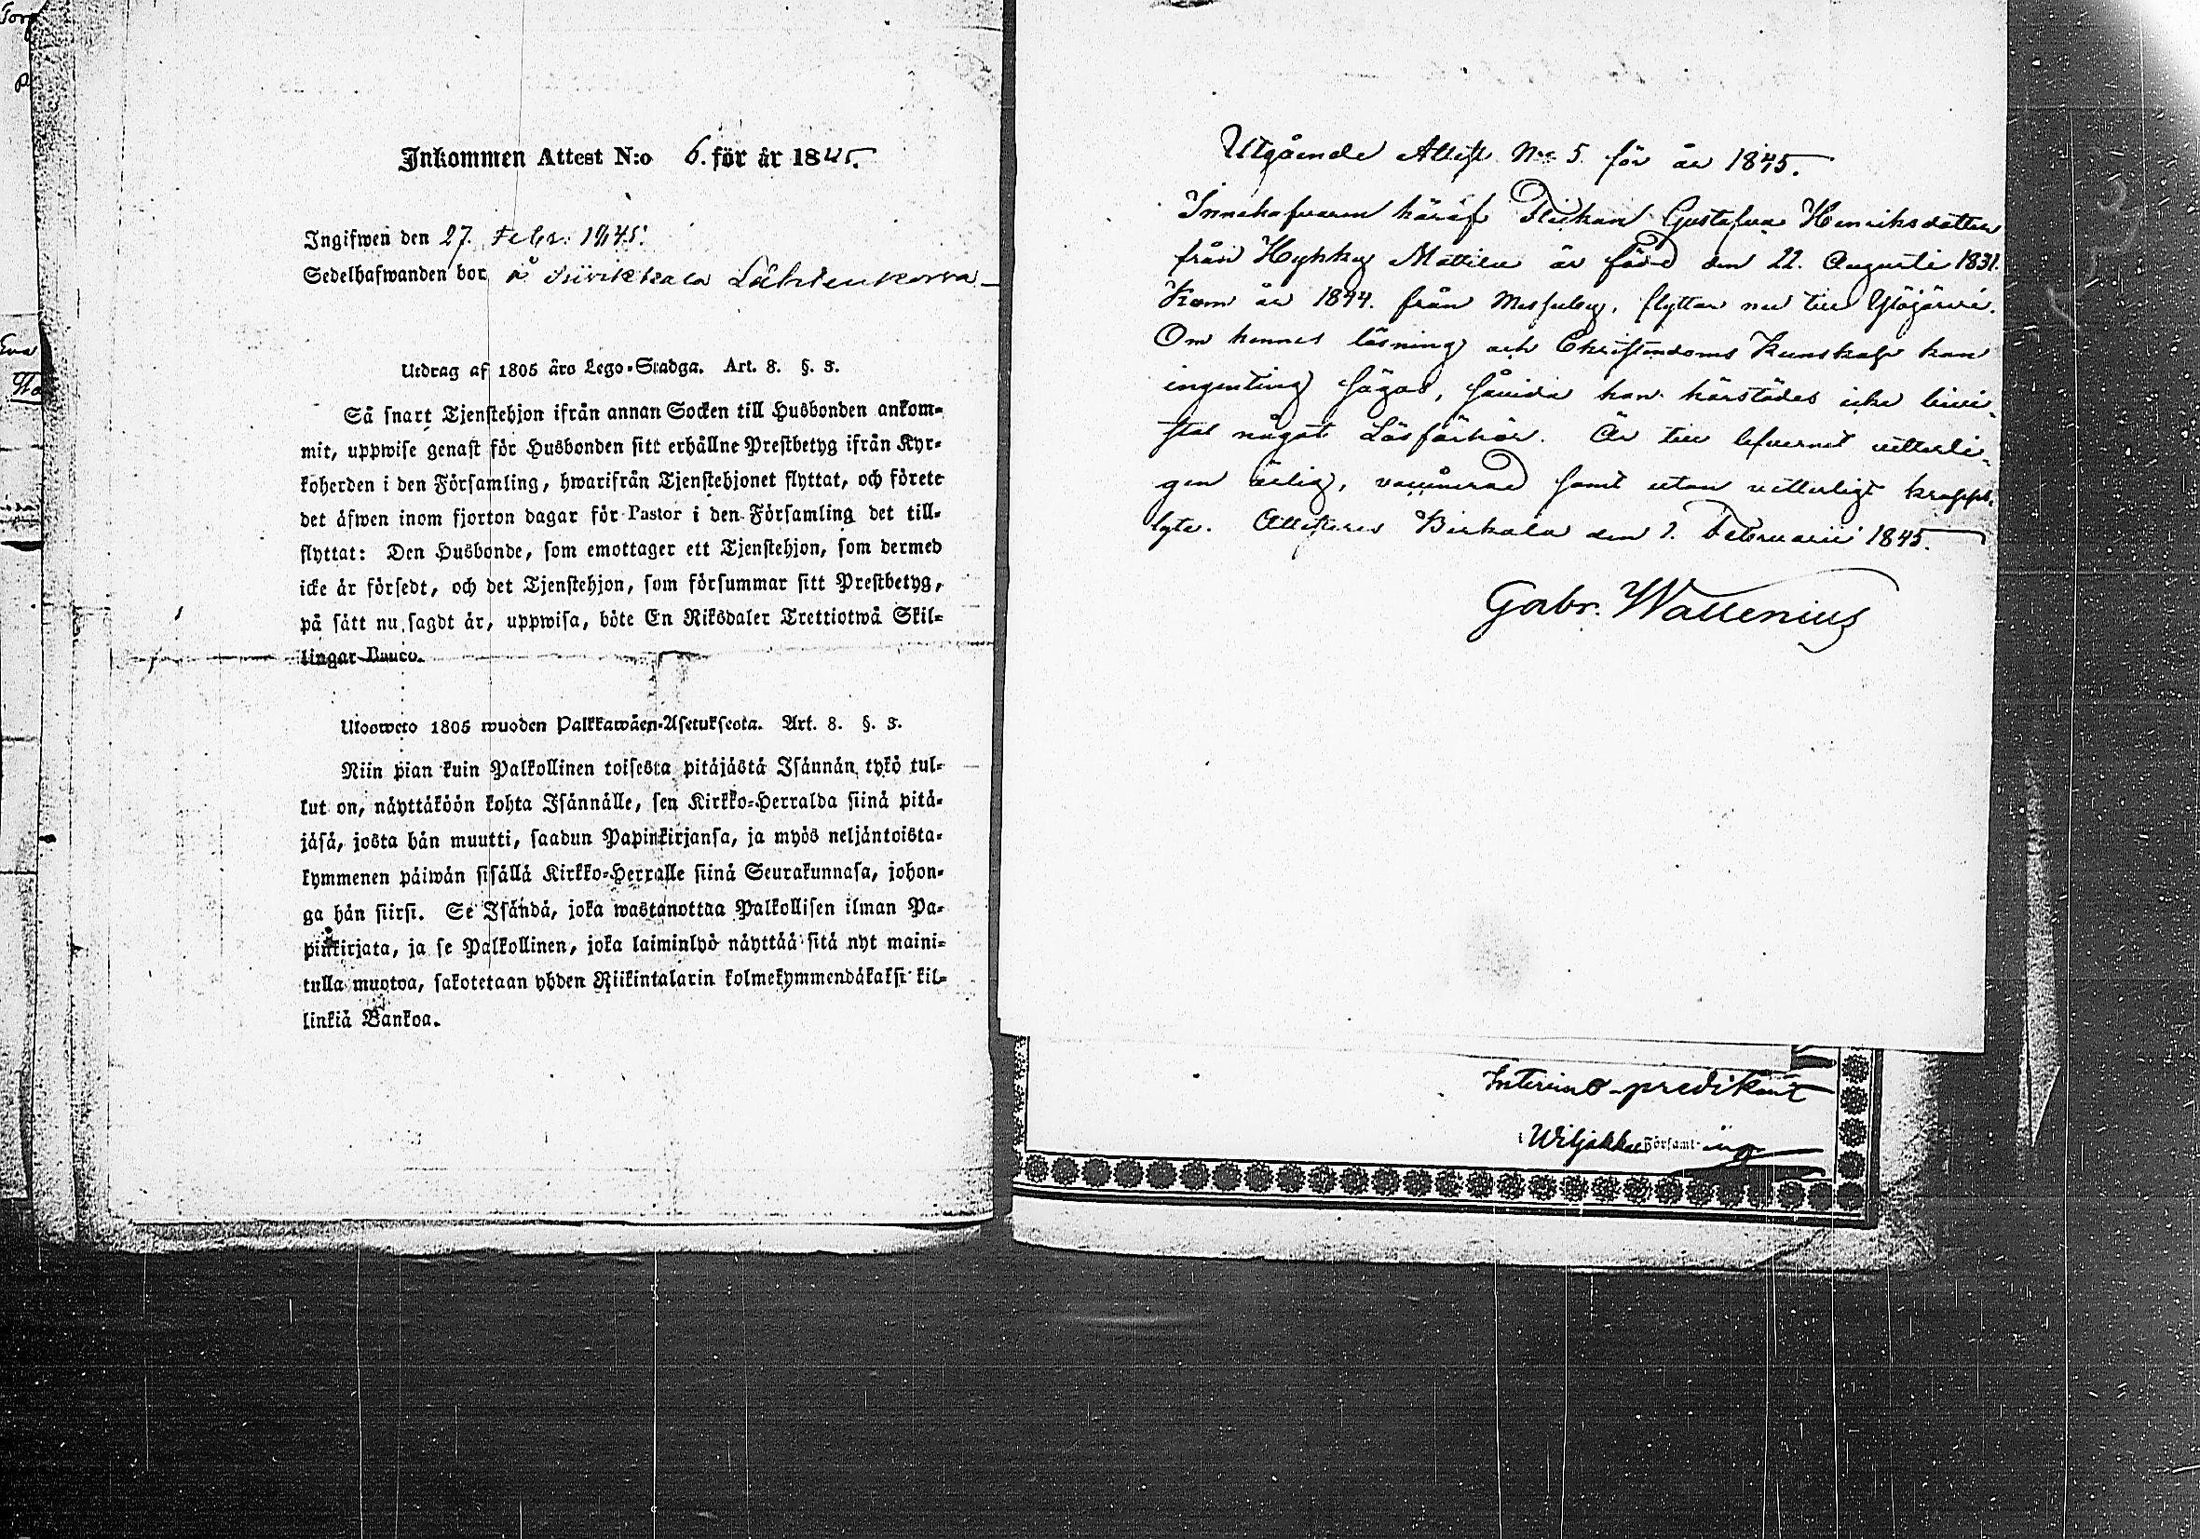 Torp
Inkommen Attest N:o 6. för år 1845.
Ingifwen den 27. Febr. 1845.
Sedelhafwanden bor å Siivikkala Lähteenkorva
Utdrag af 1805 års Lego-Stadga. Art. 8. §. 3.
Så snart Tjenstehjon ifrån annan Socken till Husbonden ankom-
mit, uppwise genast för Husbonden sitt erhållne Prestbetyg ifrån Kyr-
koherden i den Församling, hwarifrån Tjenstehjonet flyttat, och förete
det äfwen inom fjorton dagar för Pastor i den Församling det till-
flyttat: Den Husbonde, som emottager ett Tjenstehjon, som dermed
icke är försedt, och det Tjenstehjon, som försummar sitt Prestbetyg,
på sätt nu sagdt är, uppwisa, böte En Riksdaler Trettiotwå Skil-
lingar Banco.
Ulosweto 1805 wuoden Palkkawäen-Asetuksesta. Art. 8. §. 3.
Niin pian kuin Palkollinen toisesta pitäjästä Isännän tykö tul-
lut on, näyttäköön kohta Isännälle, sen Kirkko-Herralda siinä pitä-
jäsä, josta hän muutti, saadun Papinkirjansa, ja myös neljäntoista-
kymmenen päiwän sisällä Kirkko-Herralle siinä Seurakunnasa, johon-
ga hän siirsi. Se Isändä, joka wastanottaa Palkollisen ilman Pa-
pinkirjata, ja se Palkollinen, joka laiminlyö näyttää sitä nyt maini-
tulla muotoa, sakotetaan yhden Riikintalarin kolmekymmendäkaksi kil-
linkiä Bankoa.
Utgående Attest No 5 för år 1845.
Innehafvaren häraf Flickan Gustafva Henriksdotter
från Hyhky Mattila är född den 22. Augusti 1831.
Kom år 1844. från Messuby, flyttar nu till Ylöjärvi.
Om hennes läsning och Christendoms Kunskap kan
ingenting sägas, såvida hon härstädes icke bivi-
stat något Läsförhör. Är till lefvernet vitterli-
gen ärlig, vaccinerad samt utan vitterligt kropps-
lyte. Attesteras Birkala den 1. Februarii 1845.
Gabr. Wallenius
Interims-predikant
i Wiljakkala Församling